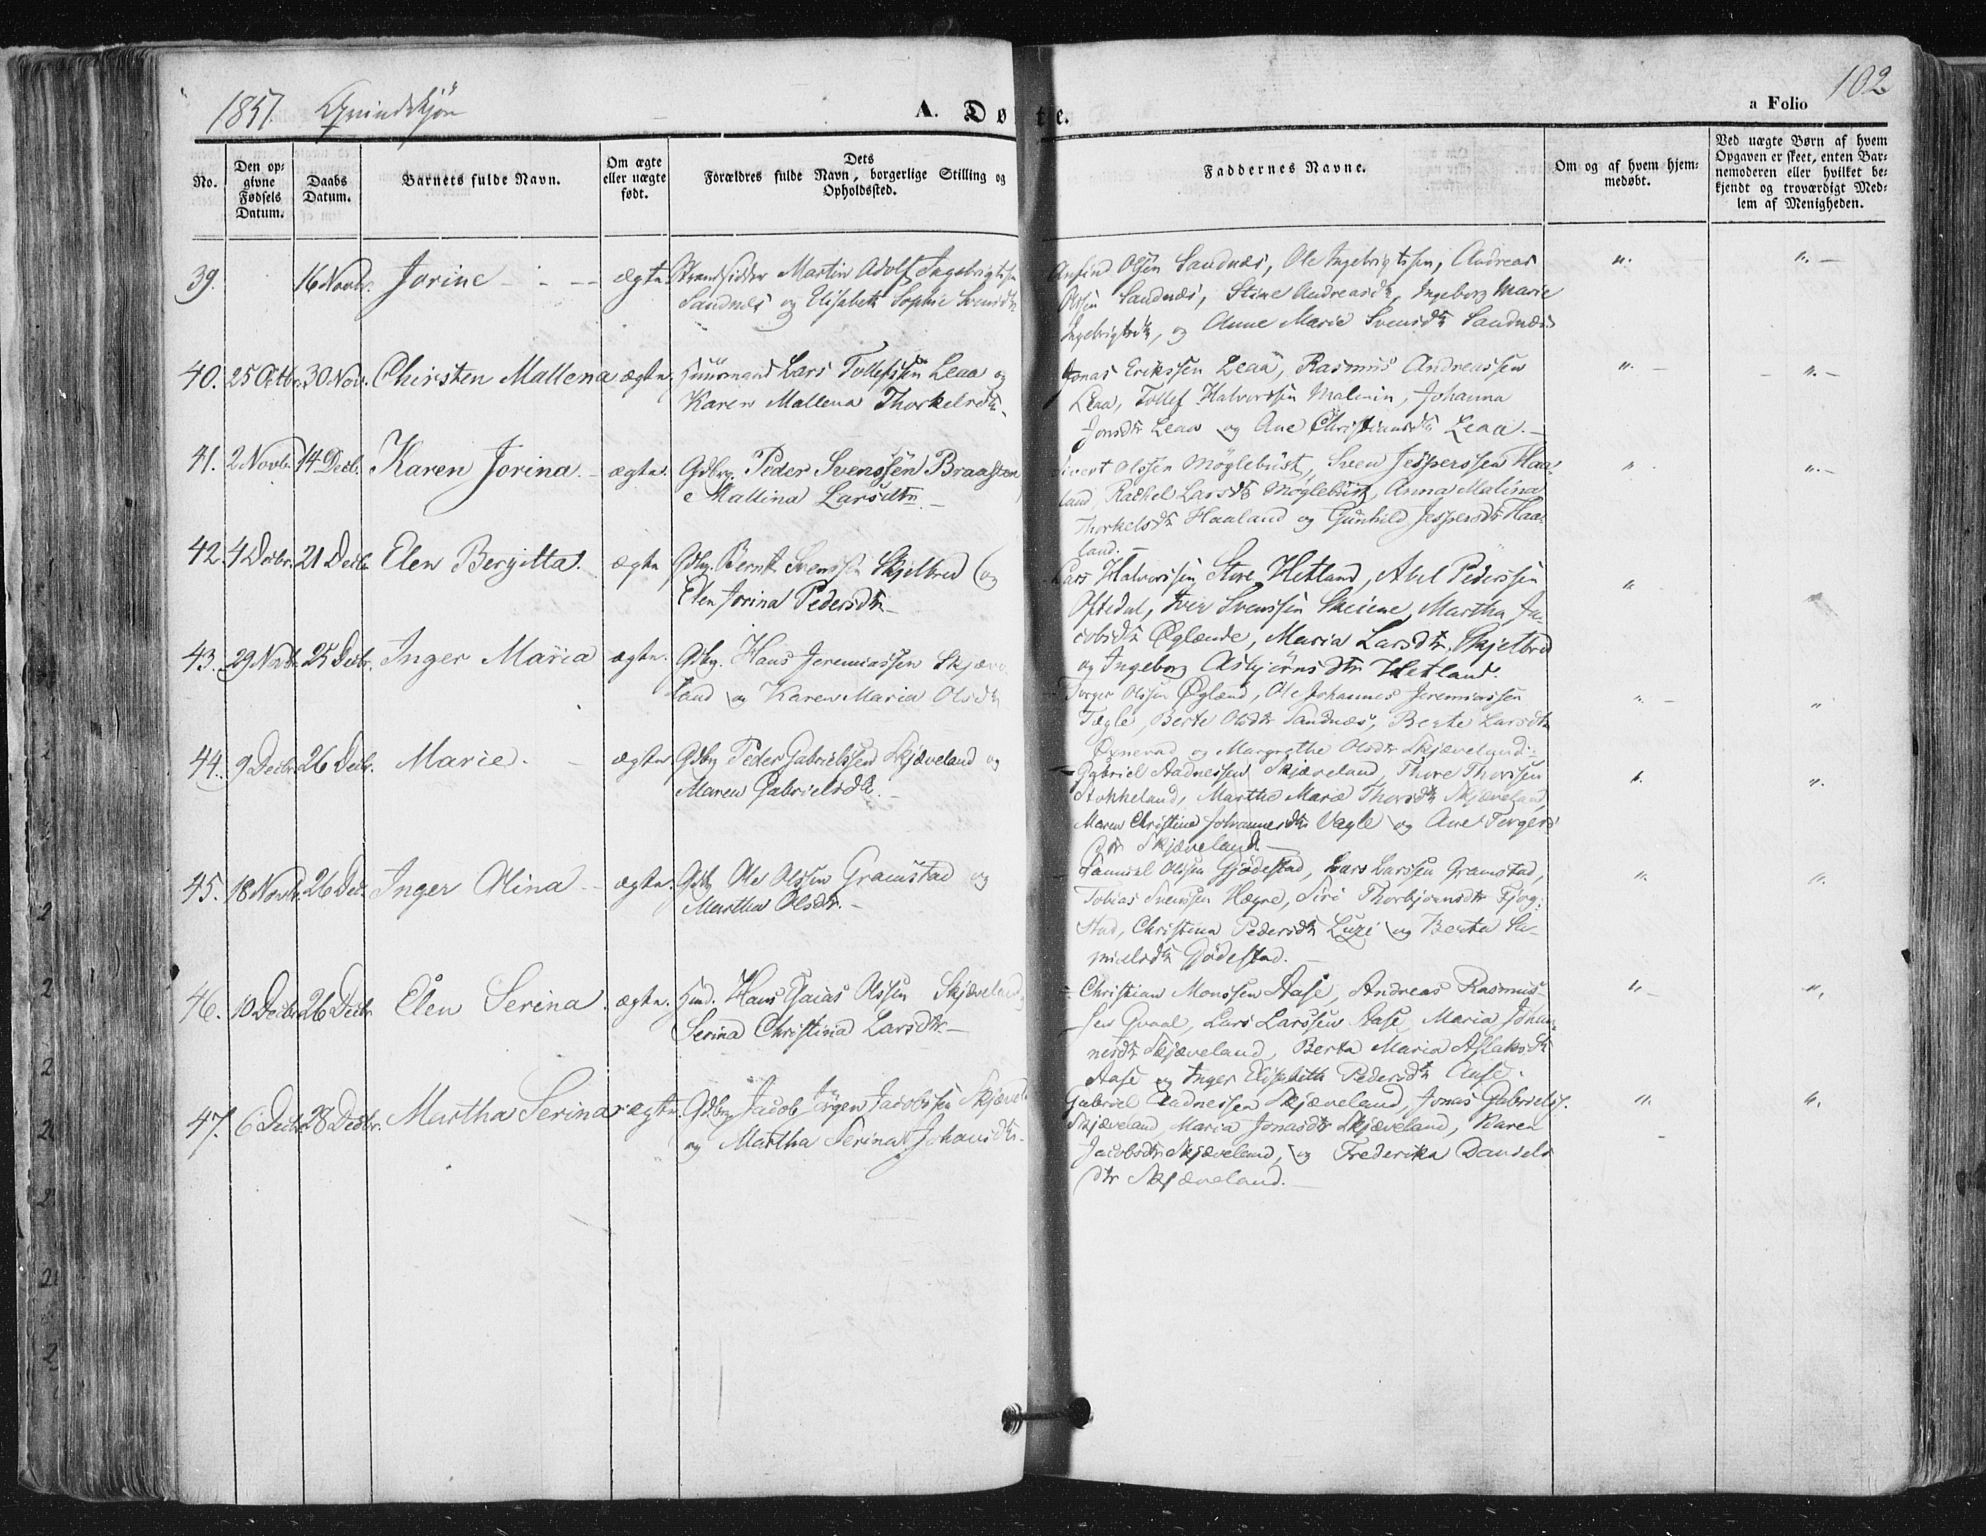 1851. Qvindekjön
A. Dø te.
a Folio 102
No.
Den op-
givne
Fødsels
Datum.
Daabs
Datum.
Barnets fulde Navn.
Om ægte
eller uægte
født.
Dets
Forældres fulde Navn, borgerlige Stilling og
Opholdssted.
Faddernes Navne.
Om og af hvem hjem-
medøbt.
Ved uægte Børn af hvem
Opgaven er skeet, enten Bar-
nemoderen eller hvilket be-
kjendt og troværdigt Med-
lem af Menigheden.
39. 16 Novbr. Jorine ægte Strandsidder Martin Adolf Ingebrigtsen
Sandnæs og Elisabeth Sophie Svensdtr
Anfind Olsen Sandnæs, Ole Ingebrigtsen, Andreas
Olsen Sandnæs, Stine Andreasdtr, Ingeborg Marie
Ingebrigtsdtr, og Anne Marie Svensdtr Sandnæs
40. 25 Octbr. 30 Nov. Chirsten Mallena ægte. Huusmand Lars Tollefssen Leaa og
Karen Mallena Thorkelsdtr.
Jonas Erikssen Leaa, Rasmus Andreassen
Leaa, Tollef Halvorssen Malmin, Johanna
Jonsdtr Leaa og Ane Christiansdtr Leaa.
41. 2 Novbr. 14 Decb. Karen Jorina. ægte. Gdbrg. Peder Svenssen Braasten
Mallina Larsdtr.
Sivert Olssen Møglebust, Sven Jesperssen Haa-
land, Rachel Larsdtr Møglebust, Anna Malina
Thorkelsdtr Haaland og Gunhild Jespersdtr Haa-
land.
42. 4 Decbr. 21 Decb. Elen Bergitta. ægte Gdbg. Bernt Svenssen Skjelbred og
Elen Jorina Pedersdtr.
Lars Halvorssen Store Hetland, Axel Pederssen
Oftedal, Iver Svenssen Skeiene, Martha Ja-
cobsdtr Øglænde, Maria Larsdtr Skjelbred
og Ingeborg Asbjørnsdtr Hetland.
43. 29 Novbr. 25 Decbr. Inger Maria ægte. Gdbg. Hans Jeremiassen Skjæve-
land og Karen Maria Olsdtr
Torger Olssen Øglænd, Ole Johannes Jeremiassen
Tægle, Berte Olsdtr Sandnæs, Berte Larsdtr
Øxnevad og Margrethe Olsdtr Skjæveland.
44. 9 Decbr. 26 Decbr. Marie. ægte Gdbg Peder Gabrielssen Skjæveland og
Maren Gabrielsdtr.
Gabriel Aadnessen Skjæveland, Thore Thorssen
Stokkeland, Marthe Marie Thorsdtr Skjæveland,
Maren Christine Johannesdtr Vagle og Ane Torgers
dtr Skjæveland.
45. 18 Novbr. 26 Dec. Inger Olina ægte. Gdbg Ole Olssen Gramstad og
Martha Olsdtr.
Samuel Olssen Gjødestad, Lars Larssen Gramstad,
Tobias Svenssen Høgre, Siri Thorbjørnsdtr Fjog-
stad, Christina Pedersdtr Luze og Berta Sa-
muelsdtr Gjødestad.
46. 10 Decbr. 26 Decbr. Elen Serina. ægte. Hmd. Hans Esaias Olssen Skjæveland
Serina Christina Larsdtr.
Christian Monssen Aase, Andreas Rasmus-
sen Qvaal, Lars Larssen Aase, Maria Johan-
nesdtr Skjæveland, Berta Maria Aslaksdtr
Aase og Inger Elisabeth Pedersdtr Aase.
47. 6 Decbr. 28 Decbr. Martha Serina ægte. Gdbrg Jacob Jørgen Jacobssen Skjævel.
og Martha Serina Johansdtr.
Gabriel Aadnessen Skjæveland, Jonas Gabrielss.
Skjæveland, Maria Jonasdtr Skjæveland, Karen
Jacobsdtr Skjæveland, og Frederika Daniels
dtr Skjæveland.